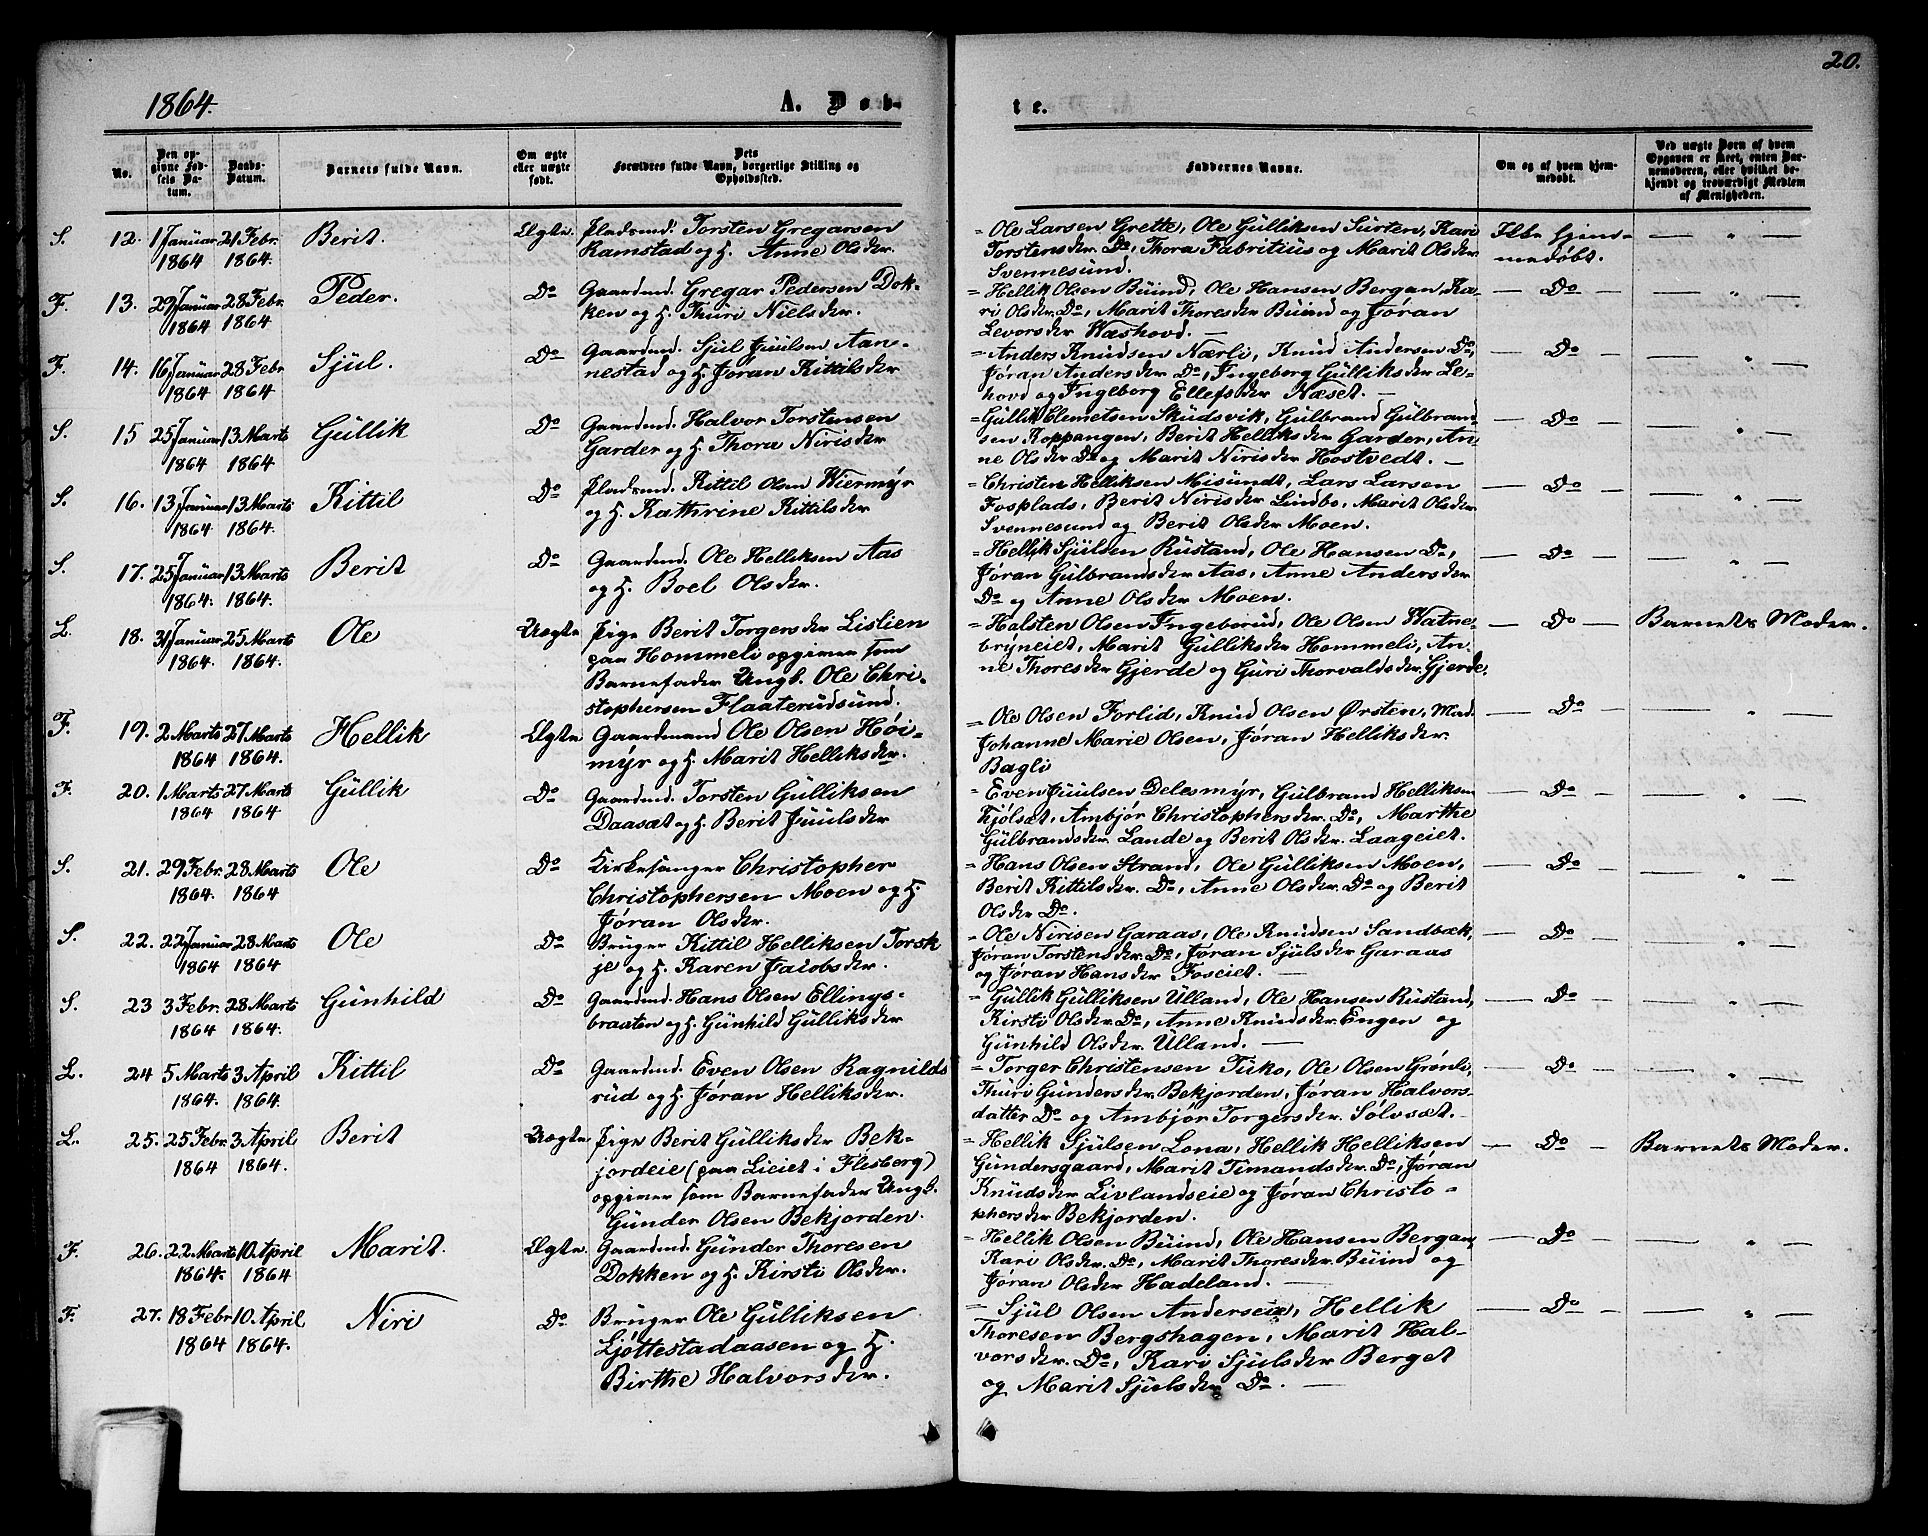 20.
1864.
A. Døb-
te.
No.
Den opgivne Fødsels Datum.
Daabs-Datum.
Barnets fulde Navn.
Om ægte eller uægte født.
Dets Forældres fulde Navn, borgerlige Stilling og Opholdssted.
Faddernes Navne.
Om og af hvem hjemmedøbt.
Ved uægte Børn af hvem Opgaven er skeet, enten Barnemoderen, eller hvilket bekjendt og troværdigt Medlem af Menigheden.
S. 12. 1 Januar 1864 21 Febr. 1864. Berit. Ægte. Pladsmd. Torsten Gregarsen
Ramstad og H. Anne Olsder.
= Ole Larsen Grette, Ole Gülliksen Sürten, Kari
Torstensder. Do, Thora Fabritiüs og Marit Olsder.
Svennesund.
Ikke hjemmedøbt. — „ —
F. 13. 29 Januar 1864 28 Febr. 1864 Peder. Do Gaardmd. Gregar Pedersen Dok-
ken og H. Thuri Nielsder.
= Hellik Olsen Büind, Ole Hansen Bergan, Ka-
ri Olsder. Do, Marit Thoresder Büind og Jøran
Levorsder Væshovd. —
— Do — — „ —
F. 14. 16 Januar 1864 28 Febr 1864 Sjül. Do Gaardmd. Sjül Jüülsen Aan-
nestad og H. Jøran Kittilsder
= Anders Knudsen Nærli, Knud Andersen Do,
Jøran Andersder Do, Ingeborg Gülliksder Le-
hovd og Ingeborg Ellefsder Næset. —
— Do — — „ —
S. 15 25 Januar 1864 13 Marts 1864 Güllik Do Gaardmd. Halvor Torstensen
Garder og H. Thora Nirisder
= Güllik Clemetsen Sküdsvik, Gülbrand Gülbrand-
sen Koppangen, Berit Helliksder Garder, An-
ne Olsder Do og Marit Nirisder Hostvedt. —
— Do — — „ —
S. 16. 13 Januar 1864 13 Marts 1864. Kittil Do Pladsmd. Kittil Olsen Wiermÿr
og H. Kathrine Kittilsder
= Christen Helliksen Misündt, Lars Larsen
Fosplads, Berit Nirisder Lindbo, Marit Olsder
Svennesund og Berit Olsder Moen.
— Do — — „ —
S. 17. 25 Januar 1864. 13 Marts 1864. Berit Do Gaardmd. Ole Helliksen Aas
og H. Boel Olsder.
= Hellik Sjülsen Rüstand, Ole Hansen Do,
Jøran Gülbrandsder Aas, Anne Andersder
Do og Anne Olsder Moen.
— Do — — „ —
L. 18. 31 Januar 1864. 25 Marts 1864. Ole Uægte Pige Berit Torgersder Lislien
paa Hommeli opgiver som
Barnefader Ungk. Ole Chri-
stophersen Flaaterüdsünd.
= Halsten Olsen Ingeborüd, Ole Olsen Watne-
brÿneiet, Marit Gülliksder Hommeli, An-
ne Thoresder Gjerde og Güri Thorvaldsder Gjerde.
— Do — Barnets Moder.
F. 19. 2 Marts 1864 27 Marts 1864. Hellik Ægte Gaardmand Ole Olsen Høi-
mÿr og H. Marit Helliksder.
= Ole Olsen Forlid, Knud Olsen Ørsten, Mad.
Johanne Marie Olsen, Jøran Helliksder.
Bagli
— Do — — „ —
F. 20. 1 Marts 1864 27 Marts 1864 Güllik Do Gaardmd. Torsten Gülliksen
Daasæt og H. Berit Jüülsder
= Even Jüülsen Delesmÿr, Gülbrand Helliksen
Kjølsæt, Ambjør Christophersder. Do, Marthe
Gülbrandsder. Lande og Berit Olsder. Laageiet.
— Do — — „ —
S. 21. 29 Febr. 1864. 28 Marts 1864 Ole Do Kirkesanger Christopher
Christophersen Moen og H.
Jøran Olsder.
= Hans Olsen Strand, Ole Gülliksen Moen,
Berit Kittilsder. Do, Anne Olsder. Do og Berit
Olsder Do.
— Do — — „ —
S. 22. 22 Januar 1864 28 Marts 1864 Ole Do Brüger Kittil Helliksen Torsk
je og H. Karen Jacobsder.
= Ole Nirisen Garaas, Ole Knudsen Sandbæk,
Jøran Torstensder. Do, Jøran Sjülsder Garaas
og Jøran Hansder Foseiet. —
— Do — — „ —
S. 23 3 Febr. 1864 28 Marts 1864. Günhild Do Gaardmd. Hans Olsen Ellings-
braaten og H. Günhild Gülliksder
= Güllik Gülliksen Ülland, Ole Hansen Rüstand,
Kirsti Olsder. Do, Anne Knudsder. Engen og
Günhild Olsder. Ülland. —
— Do — — „ —
L. 24 5 Marts 1864. 3 April 1864. Kittil Do Gaardmd. Even Olsen Ragnilds
rüd og H. Jøran Helliksder.
= Torger Christensen Tüko, Ole Olsen Grønli,
Thüri Gündersder. Bekjorden, Jøran Halvors-
datter Do og Ambjør Torgersder. Sølvsæt. —
— Do — — „ —
L. 25. 25 Febr. 1864 3 April 1864. Berit Uægte Pige Berit Gülliksder Bek-
jordeie (paa Lieiet i Flesberg)
opgiver som Barnefader Ungk.
Günder Olsen Bekjorden.
= Hellik Sjülsen Lona, Hellik Helliksen
Gündersgaard, Marit Timandsder. Do, Jøran
Knüdsder Livlandseie og Jøran Christo-
phersder Bekjorden.
— Do — Barnets Moder.
F. 26. 22 Marts 1864. 10 April 1864 Marit. Ægte. Gaardmd. Günder Thoresen
Dokken og H. Kirsti Olsder.
= Hellik Olsen Büind, Ole Hansen Bergan,
Kari Olsder. Do, Marit Thoresder Büind og
Jøran Olsder Hadeland. —
— Do — — „ —
F. 27. 18 Febr 1864 10 April 1864. Niri Do Brüger Ole Gülliksen
Ljøttestadaasen og H.
Birthe Halvorsder.
= Sjül Olsen Anderseie, Hellik
Thoresen Bergshagen, Marit Hal-
vorsder. Do, Kari Sjülsder Berget
og Marit Sjülsder Do. —
— Do — — „ —